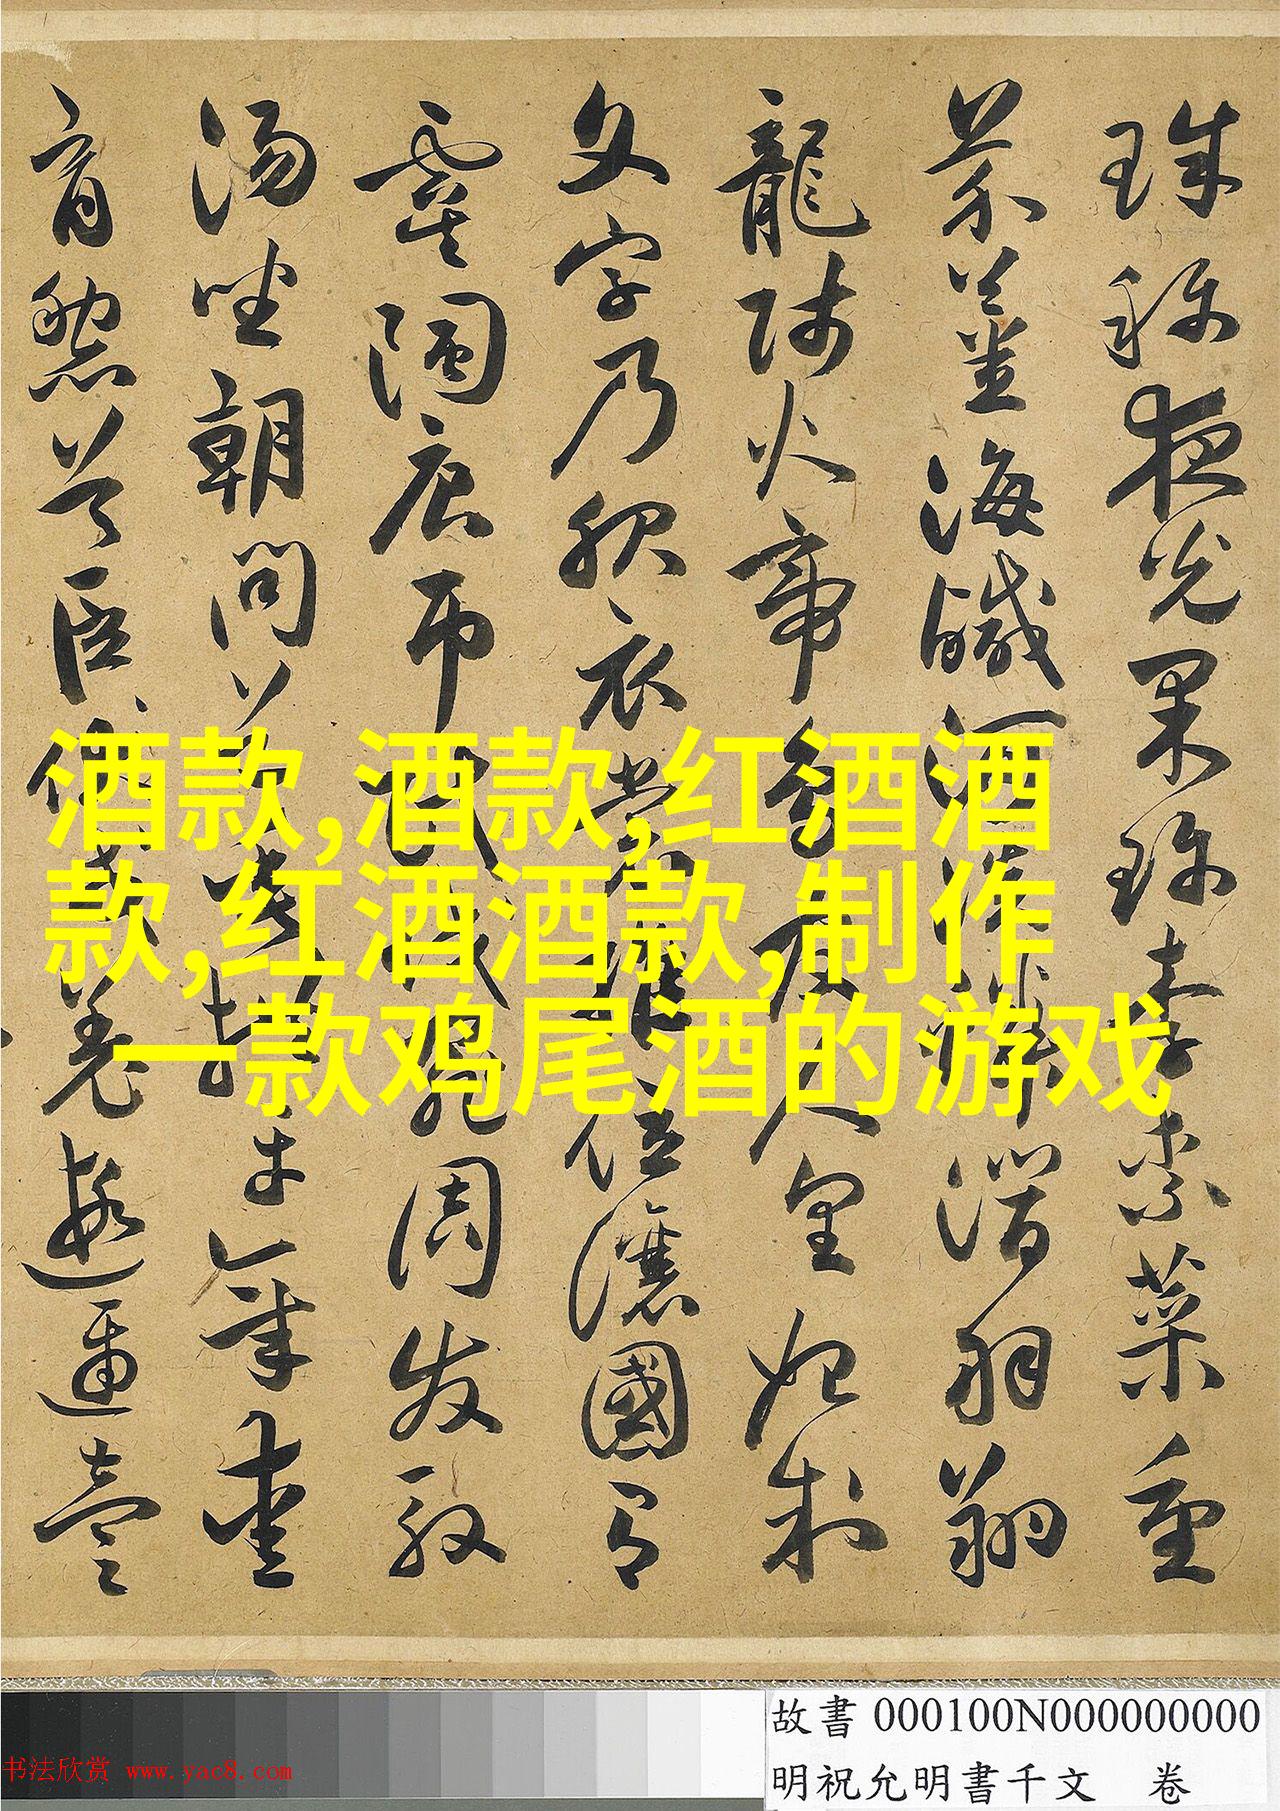 珠称夜光果珍李柰菜重
芥薑海鹹河淡鱗潛羽翔
龍师火帝鳥官人皇始制
文字乃服衣裳推位讓國有
虞陶唐弔民伐罪周发殷
湯坐朝問道垂拱平章愛
育黎首臣伏戎羌遐邇壹
酒款,酒款,红酒酒
款,红酒酒款,制作
一款鸡尾酒的游戏
故書 000100N000000000
明祝允明書千文 卷
书法欣赏 www.yac8.com